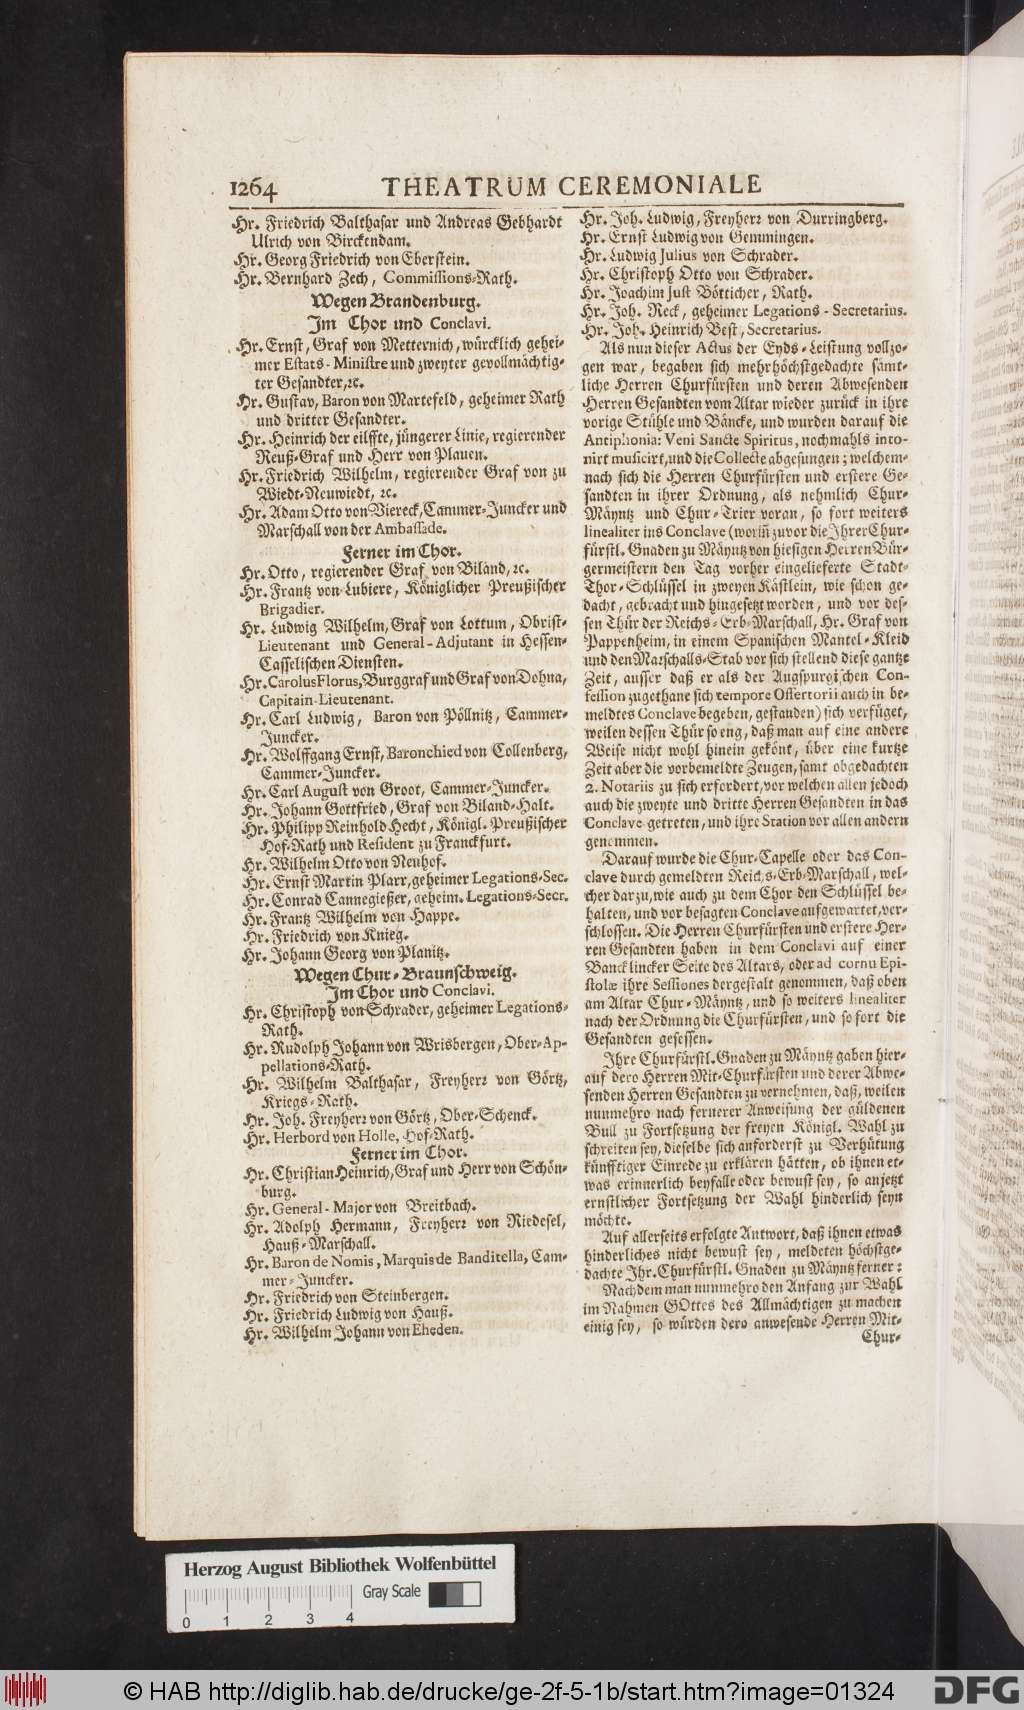 1264 THEATRUM CEREMONIALE
Hr. Friedrich Balthasar und Andreas Gebhardt
Ulrich von Birckendam.
Hr. Georg Friedrich von Eberstein.
Hr. Bernhard Zech, Commissions-Rath.
Wegen Brandenburg.
Im Chor und Conclavi.
Hr. Ernst, Graf von Metternich, würcklich gehei-
mer Estats-Ministre und zweyter gevollmächtig-
ter Gesandter, ꝛc.
Hr. Gustav, Baron von Martefeld, geheimer Rath
und dritter Gesandter.
Hr. Heinrich der eilffte, jüngerer Linie, regierender
Reuß-Graf und Herr von Plauen.
Hr. Friedrich Wilhelm, regierender Graf von zu
Wiedt-Neuwiedt, ꝛc.
Hr. Adam Otto von Viereck, Cammer-Juncker und
Marschall von der Ambassade.
Ferner im Chor.
Hr. Otto, regierender Graf von Biland, ꝛc.
Hr. Frantz von Lubiere, Königlicher Preußischer
Brigadier.
Hr. Ludwig Wilhelm, Graf von Lottum, Obrist-
Lieutenant und General-Adjutant in Hessen-
Casselischen Diensten.
Hr. Carolus Florus, Burggraf und Graf von Dohna,
Capitain-Lieutenant.
Hr. Carl Ludwig, Baron von Pöllnitz, Cammer-
Juncker.
Hr. Wolffgang Ernst, Baron chied von Collenberg,
Cammer-Juncker.
Hr. Carl August von Groot, Cammer-Juncker.
Hr. Johann Gottfried, Graf von Biland-Halt.
Hr. Philipp Reinhold Hecht, Königl. Preußischer
Hof-Rath und Resident zu Franckfurt.
Hr. Wilhelm Otto von Neuhof.
Hr. Ernst Martin Plarr, geheimer Legations-Sec.
Hr. Conrad Cannegießer, geheim. Legations-Secr.
Hr. Frantz Wilhelm von Happe.
Hr. Friedrich von Knieg.
Hr. Johann Georg von Planitz.
Wegen Chur-Braunschweig.
Im Chor und Conclavi.
Hr. Christoph von Schrader, geheimer Legations-
Rath.
Hr. Rudolph Johann von Wrisbergen, Ober-Ap-
pellations-Rath.
Hr. Wilhelm Balthasar, Freyherr von Görtz,
Kriegs-Rath.
Hr. Joh. Freyherr von Görtz, Ober-Schenck.
Hr. Herbord von Holle, Hof-Rath.
Ferner im Chor.
Hr. Christian Heinrich, Graf und Herr von Schön-
burg.
Hr. General-Major von Breitbach.
Hr. Adolph Hermann, Freyherr von Riedesel,
Hauß-Marschall.
Hr. Baron de Nomis, Marquis de Banditella, Cam-
mer-Juncker.
Hr. Friedrich von Steinbergen.
Hr. Friedrich Ludwig von Hauß.
Hr. Wilhelm Johann von Eheden.
Hr. Joh. Ludwig, Freyherr von Durringberg.
Hr. Ernst Ludwig von Gemmingen.
Hr. Ludwig Julius von Schrader.
Hr. Christoph Otto von Schrader.
Hr. Joachim Just Bötticher, Rath.
Hr. Joh. Reck, geheimer Legations-Secretarius.
Hr. Joh. Heinrich Best, Secretarius.
Als nun dieser Actus der Eyds-Leistung vollzo-
gen war, begaben sich mehrhöchstgedachte sämt-
liche Herren Churfürsten und deren Abwesenden
Herren Gesandten vom Altar wieder zurück in ihre
vorige Stühle und Bäncke, und wurden darauf die
Antiphonia: Veni Sancte Spiritus, nochmahls into-
nirt musicirt, und die Collecte abgesungen; welchem-
nach sich die Herren Churfürsten und erstere Ge-
sandten in ihrer Ordnung, als nehmlich Chur-
Mäyntz und Chur-Trier voran, so fort weiters
linealiter ins Conclave (worin̄ zuvor die Ihrer Chur-
fürstl. Gnaden zu Mäyntz von hiesigen Herren Bür-
germeistern den Tag vorher eingelieferte Stadt-
Thor-Schlüssel in zweyen Kästlein, wie schon ge-
dacht, gebracht und hingesetzt worden, und vor des-
sen Thür der Reichs-Erb-Marschall, Hr. Graf von
Pappenheim, in einem Spanischen Mantel-Kleid
und den Marschalls-Stab vor sich stellend diese gantze
Zeit, ausser daß er als der Augspurgischen Con-
fession zugethane sich tempore Offertorii auch in be-
meldtes Conclave begeben, gestanden) sich verfüget,
weilen dessen Thür so eng, daß man auf eine andere
Weise nicht wohl hinein gekönt, über eine kurtze
Zeit aber die vorbemeldte Zeugen, samt obgedachten
2. Notariis zu sich erfordert, vor welchen allen jedoch
auch die zweyte und dritte Herren Gesandten in das
Conclave getreten, und ihre Station vor allen andern
genommen.
Darauf wurde die Chur-Capelle oder das Con-
clave durch gemeldten Reichs-Erb-Marschall, wel-
cher darzu, wie auch zu dem Chor den Schlüssel be-
halten, und vor besagten Conclave aufgewartet, ver-
schlossen. Die Herren Churfürsten und erstere Her-
ren Gesandten haben in dem Conclavi auf einer
Banck lincker Seite des Altars, oder ad cornu Epi-
stolæ ihre Sessiones dergestalt genommen, daß oben
am Altar Chur-Mäyntz, und so weiters linealiter
nach der Ordnung die Churfürsten, und so fort die
Gesandten gesessen.
Ihre Churfürstl. Gnaden zu Mäyntz gaben hier-
auf dero Herren Mit-Churfürsten und derer Abwe-
senden Herren Gesandten zu vernehmen, daß, weilen
nunmehro nach fernerer Anweisung der güldenen
Bull zu Fortsetzung der freyen Königl. Wahl zu
schreiten sey, dieselbe sich anforderst zu Verhütung
künfftiger Einrede zu erklären hätten, ob ihnen et-
was erinnerlich beyfalle oder bewust sey, so anjetzt
ernstlicher Fortsetzung der Wahl hinderlich seyn
möchte.
Auf allerseits erfolgte Antwort, daß ihnen etwas
hinderliches nicht bewust sey, meldeten höchstge-
dachte Ihr. Churfürstl. Gnaden zu Mäyntz ferner:
Nachdem man nunmehro den Anfang zur Wahl
im Nahmen GOttes des Allmächtigen zu machen
einig sey, so würden dero anwesende Herren Mit-
Chur-
Herzog August Bibliothek Wolfenbüttel
Gray Scale
0 1 2 3 4
© HAB http://diglib.hab.de/drucke/ge-2f-5-1b/start.htm?image=01324
DFG